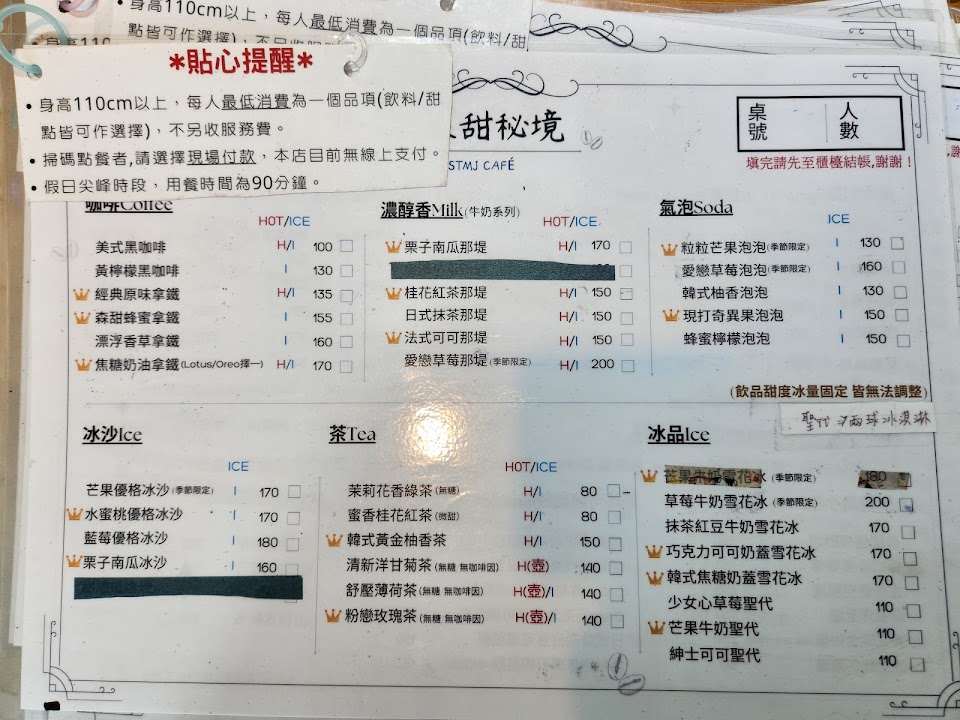 身高110cm以上，每人最低消費為一個品項(飲料/甜
點皆可作選擇)，不另收服務費
身高110
*貼心提醒*
• 身高110cm以上，每人最低消費為一個品項(飲料/甜
點皆可作選擇)，不另收服務費。
• 掃碼點餐者,請選擇現場付款，本店目前無線上支付。
• 假日尖峰時段，用餐時間為90分鐘。
甜秘境
STMJ CAFÉ
桌號 人數
填完請先至櫃檯結帳,謝謝！
咖啡Coffee
HOT/ICE
美式黑咖啡 H/I 100
黃檸檬黑咖啡 I 130
經典原味拿鐵 H/I 135
森甜蜂蜜拿鐵 I 155
漂浮香草拿鐵 I 160
焦糖奶油拿鐵(Lotus/Oreo擇一) H/I 170
濃醇香Milk(牛奶系列)
HOT/ICE
栗子南瓜那堤 H/I 170
桂花紅茶那堤 H/I 150
日式抹茶那堤 H/I 150
法式可可那堤 H/I 150
愛戀草莓那堤(季節限定) H/I 200
氣泡Soda
ICE
粒粒芒果泡泡(季節限定) I 130
愛戀草莓泡泡(季節限定) I 160
韓式柚香泡泡 I 130
現打奇異果泡泡 I 150
蜂蜜檸檬泡泡 I 150
(飲品甜度冰量固定 皆無法調整)
聖代為兩球冰淇淋
冰沙Ice
ICE
芒果優格冰沙(季節限定) I 170
水蜜桃優格冰沙 I 170
藍莓優格冰沙 I 180
栗子南瓜冰沙 I 160
茶Tea
HOT/ICE
茉莉花香綠茶(無糖) H/I 80
蜜香桂花紅茶(微甜) H/I 80
韓式黃金柚香茶 H/I 150
清新洋甘菊茶(無糖 無咖啡因) H(壺) 140
舒壓薄荷茶(無糖 無咖啡因) H(壺)/I 140
粉戀玫瑰茶(無糖 無咖啡因) H(壺)/I 140
冰品Ice
芒果牛奶雪花冰(季節限定) 180
草莓牛奶雪花冰(季節限定) 200
抹茶紅豆牛奶雪花冰 170
巧克力可可奶蓋雪花冰 170
韓式焦糖奶蓋雪花冰 170
少女心草莓聖代 110
芒果牛奶聖代 110
紳士可可聖代 110